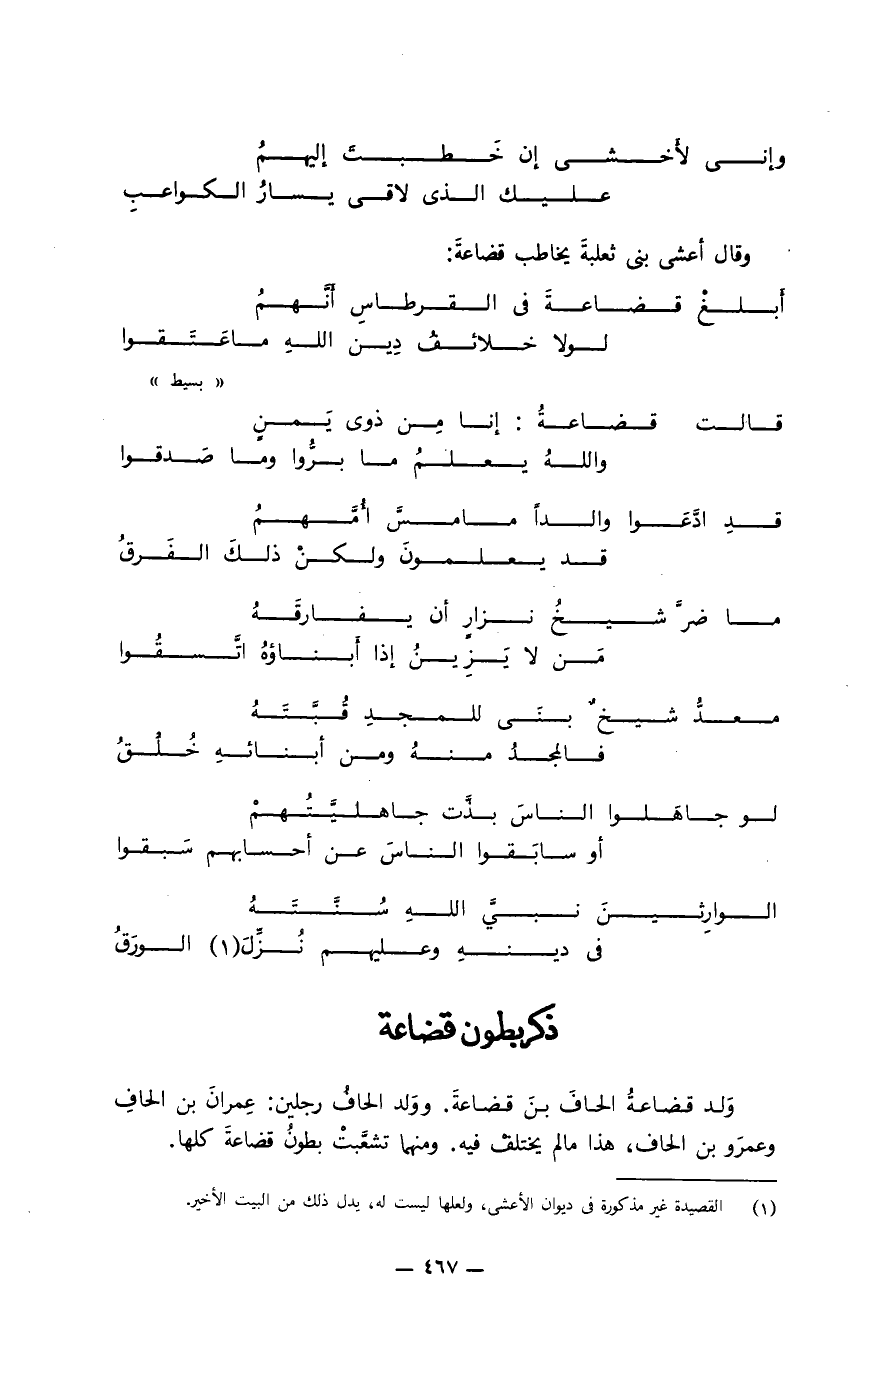 وإنى لأخشى إن خَطبتَ إليهمُ
عليك الذى لاقى يسارُ الكواعبِ
وقال أعشى بنى ثعلبةَ يخاطب قضاعةَ:
أَبلغْ قضاعةَ فى القرطاسِ أَنَّهمُ
لولا خلائفُ دِينِ اللهِ ماعَتَقوا
« بسيط »
قالت قضاعةُ : إنا مِن ذوى يَمنٍ
واللهُ يعلمُ ما برُّوا وما صَدقوا
قدِ ادَّعَوا والداً مامسَّ أُمَّهمُ
قد يعلمونَ ولكنْ ذلكَ الفَرقُ
ما ضرَّ شيخُ نزارٍ أن يفارقَهُ
مَن لا يَزِينُ إذا أَبناؤهُ اتَّسقُوا
معدُّ شيخٌ بنَى للمجدِ قُبَّتَهُ
فالمجدُ منهُ ومن أبنائهِ خُلُقُ
لو جاهَلوا الناسَ بذَّت جاهليَّتُهمْ
أو سابَقوا الناسَ عن أحسابهم سَبقوا
الوارِثينَ نبىَّ اللهِ سُنَّتَهُ
فى دينهِ وعليهم نُزِّلَ(١) الورَقُ
ذكر بطون قضاعة
وَلد قضاعةُ الحافَ بنَ قضاعةَ. ووَلد الحافُ رجلين: عِمرانَ بن الحافِ
وعمرَو بن الحاف، هذا مالم يختلف فيه. ومنها تشعَّبتْ بطونُ قضاعةَ كلها.
(١) القصيدة غير مذكورة فى ديوان الأعشى، ولعلها ليست له، يدل ذلك من البيت الأخير.
— ٤٦٧ —